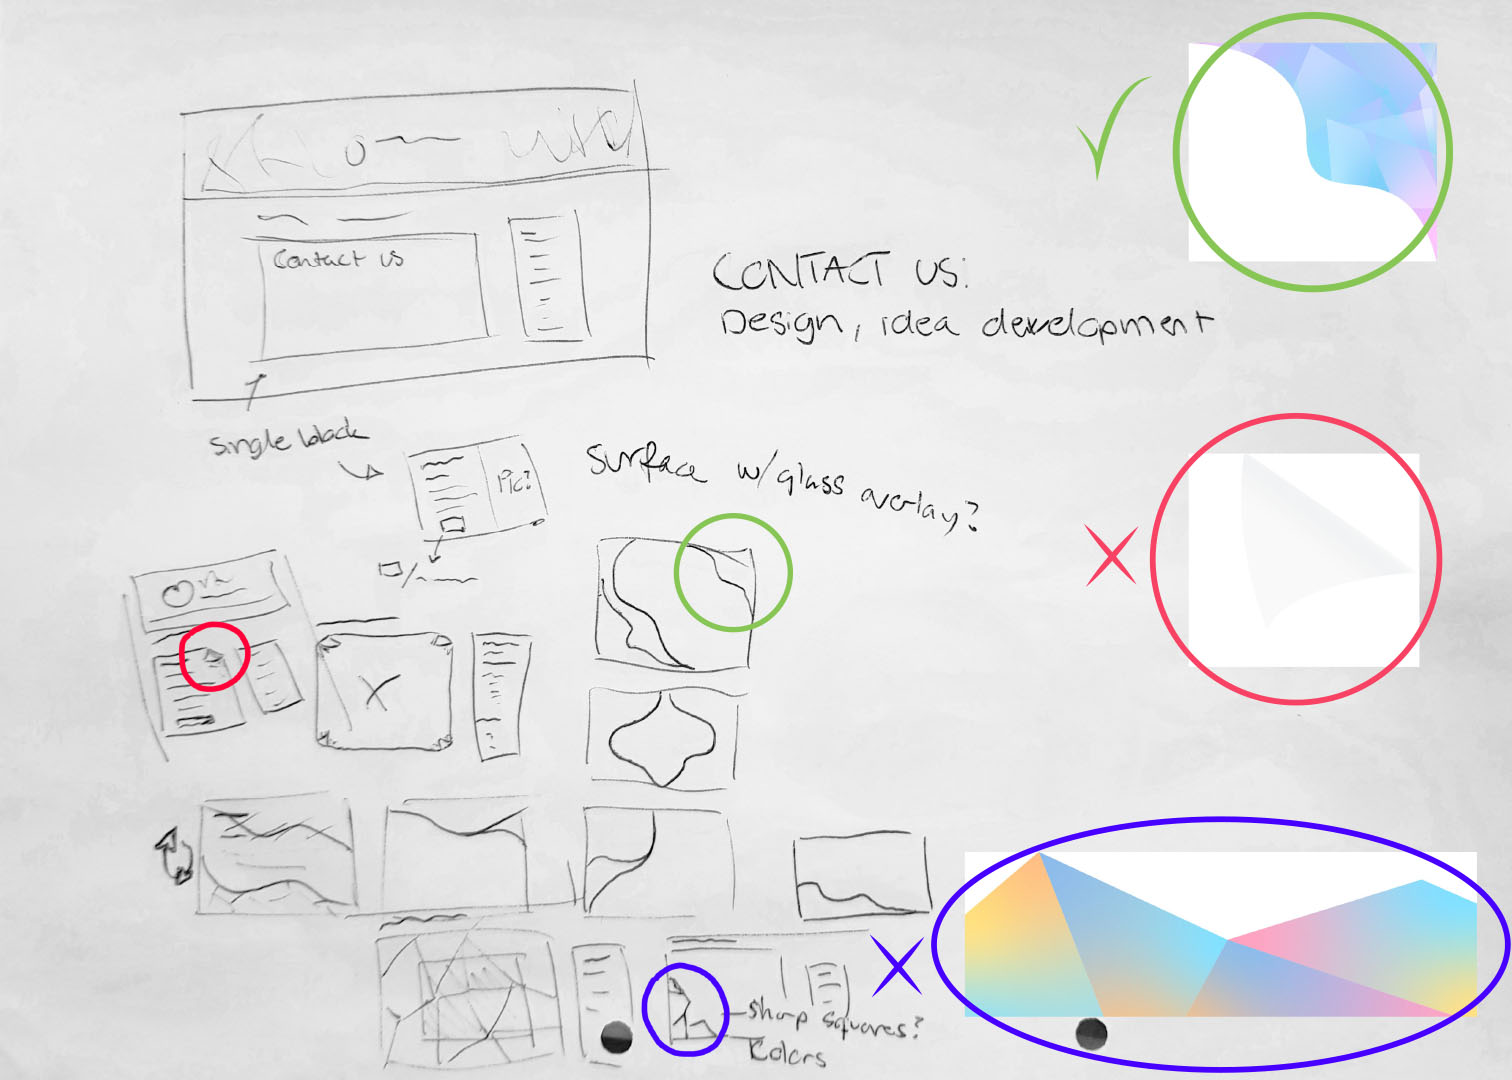 Contact us
CONTACT US:
Design, idea development
Single block
Pic?
Surface w/glass overlay?
sharp squares?
Colors